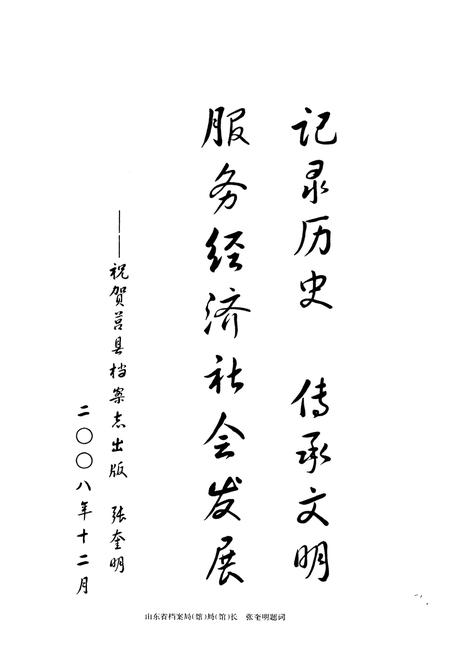 记录历史 传承文明
服务经济社会发展
——祝贺莒县档案志出版 张奎明
二〇〇八年十二月
山东省档案局(馆)局(馆)长 张奎明题词